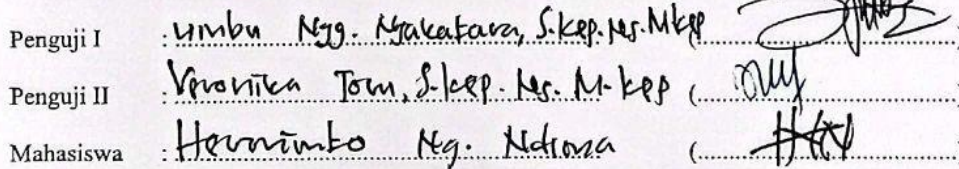 Penguji I : Umbu Ngg. Njakatara, S.Kep.Ns.MKep (....................)
Penguji II : Veronika Toru, S.Kep. Ns. M.Kep (....................)
Mahasiswa : Ng. (....................)